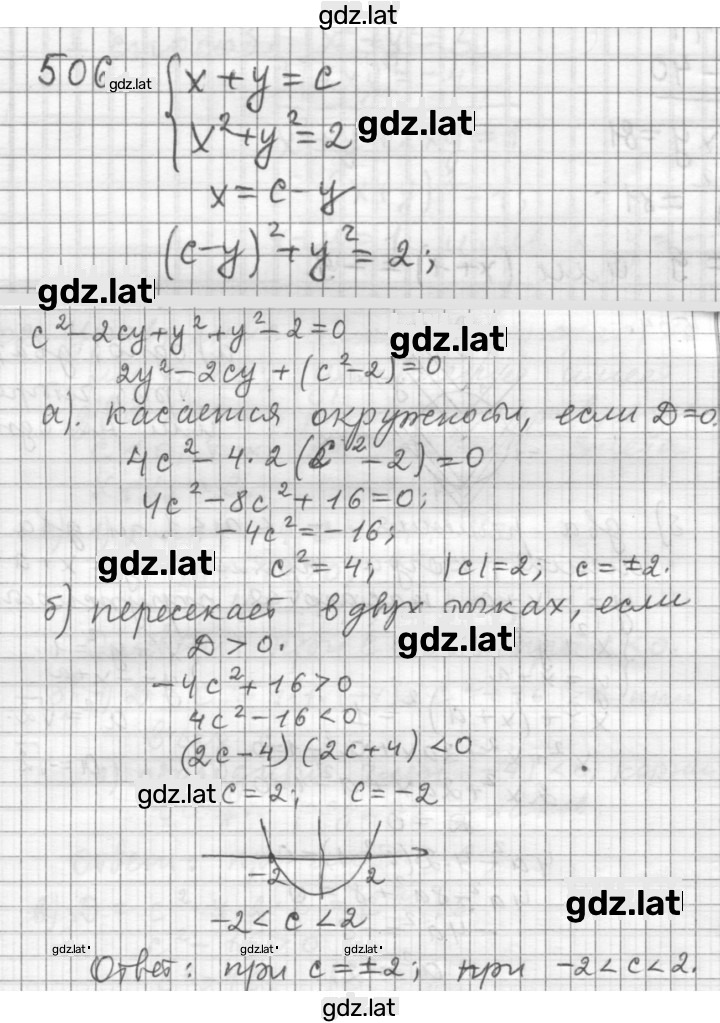 gdz.lat
506 gdz.lat { x + y = c
x² + y² = 2 gdz.lat
x = c - y
(c-y)² + y² = 2;
gdz.lat
c² - 2cy + y² + y² - 2 = 0
gdz.lat
2y² - 2cy + (c² - 2) = 0
а). касается окружности, если D=0.
4c² - 4·2(c² - 2) = 0
4c² - 8c² + 16 = 0;
-4c² = -16;
gdz.lat c² = 4; |c| = 2; c = ±2.
б) пересекает в двух точках, если
gdz.lat
D > 0.
-4c² + 16 > 0
4c² - 16 < 0
(2c - 4)(2c + 4) < 0
gdz.lat c = 2; c = -2
-2 2
gdz.lat
-2 < c < 2
gdz.lat gdz.lat gdz.lat
Ответ: при c = ±2; при -2 < c < 2.
gdz.lat